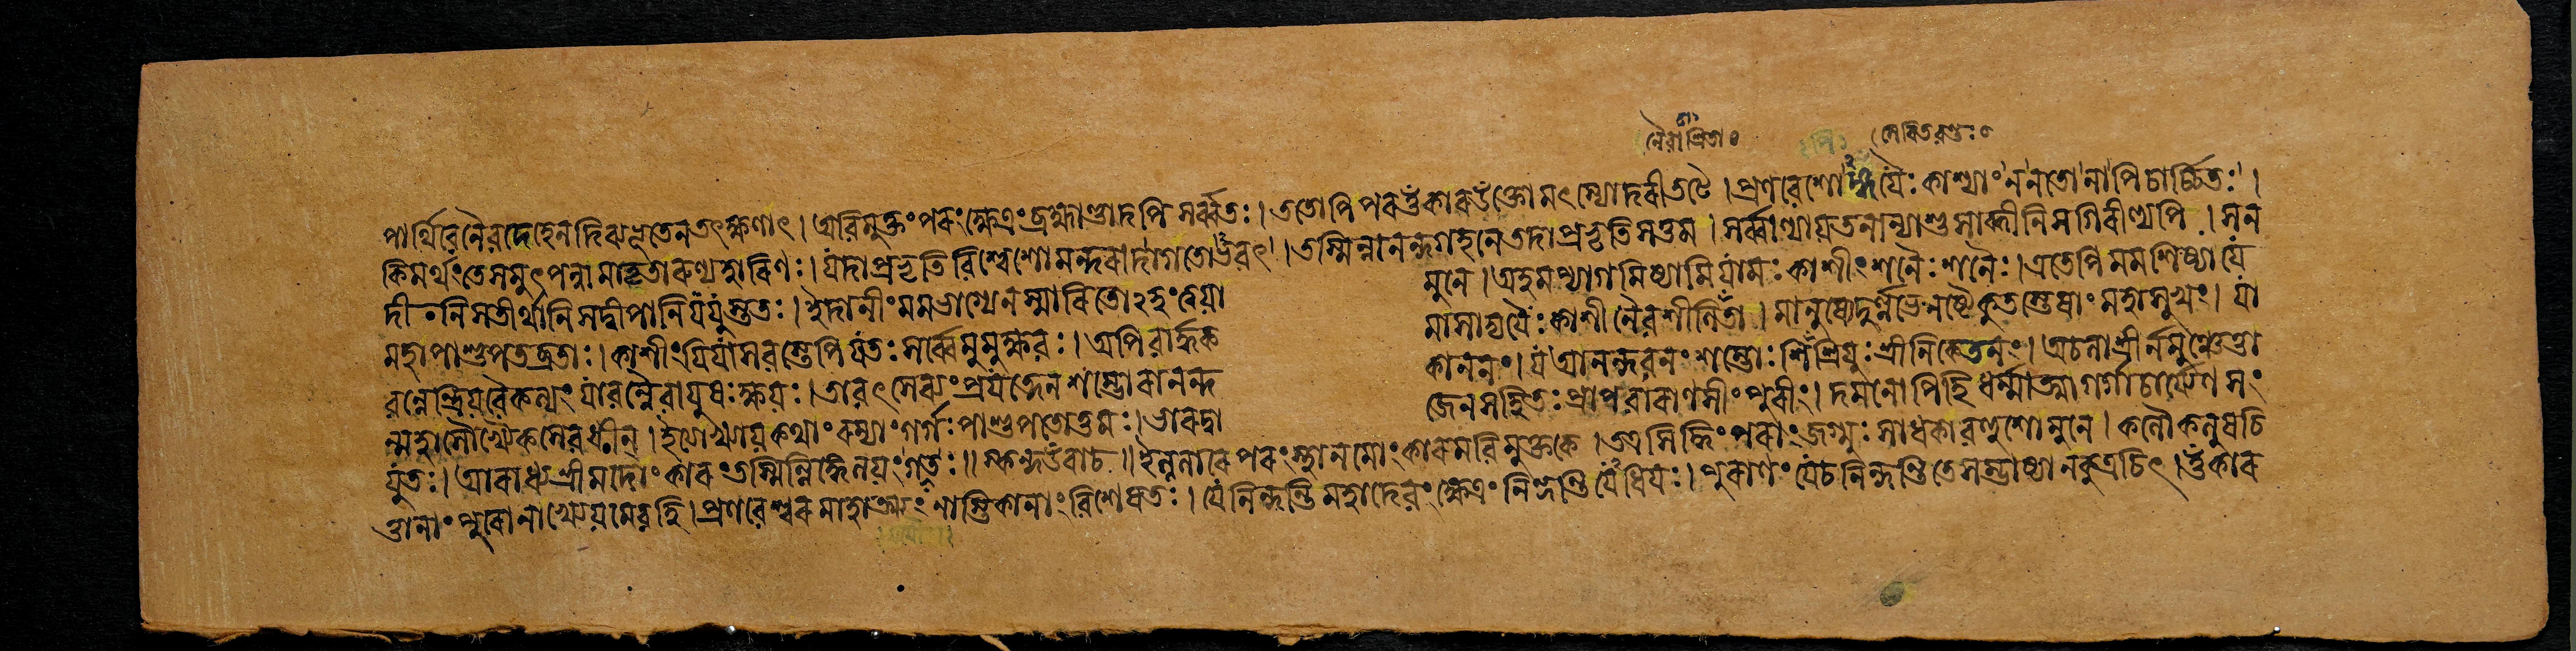 পার্থিবেনৈবদেহেনদিব্যভূতেনতৎক্ষণাৎ। অবিমুক্তংপরংক্ষেত্রংব্রহ্মাণ্ডাদপিসর্ব্বতঃ। ততোপিপর মৎস্যোদরীতটে। প্রণবেশো যৈঃকাশ্যাংননতোনাপিচার্চ্চিতঃ।
কিমর্থংতেসমুৎপন্নামাতৃতারুণ্যহারিণঃ। যদাপ্রভৃতিবিশ্বেশোমন্দরাদাগতোঽভবৎ। তস্মিন্নানন্দগহনেতদাপ্রভৃতিসত্তম। সর্ব্বাণ্যায়তনান্যাশুসাব্ধীনিসগিরীণ্যপি। সন
দী নিসতীর্থানিসদ্বীপানিযযুস্ততঃ। ইদানীংমমভাগ্যেনস্মারিতোঽহংত্বয়া মুনে। অহমপ্যাগমিষ্যামিযামঃকাশীংশনৈঃশনৈঃ। এতেপিমমশিষ্যাযে
মহাপাশুপতব্রতাঃ। কাশীংযিযাসবস্তেপিযতঃসর্ব্বেমুমুক্ষবঃ। অপিবার্দ্ধক মাসাদ্যযৈঃকাশীনৈবশীলিতা। মানুষ্যেদুর্ল্লভেনষ্টেকুতস্তেষাংমহাসুখং। যা
বন্নেন্দ্রিয়বৈকল্যংযাবন্নৈবায়ুষঃক্ষয়ঃ। তাবৎসেব্যংপ্রযত্নেনশম্ভোরানন্দ কাননং। যআনন্দবনংশম্ভোঃশিশ্রিযুঃশ্রীনিকেতনং। অচলাশ্রীর্নমুঞ্চেত্তা
ন্মহাসৌখ্যৈকসেবধীন্। ইত্যাখ্যায়কথাংরম্যাংগর্গঃপাশুপতোত্তমঃ। ভারদ্বা জেনসহিতঃপ্রাপবারাণসীংপুরীং। দমনোপিহিধর্ম্মাত্মাগর্গাচার্য্যেণসং
যুতঃ। আরাধ্যশ্রীমদোংকারংতস্মিল্লিঙ্গেলয়ংগতঃ॥ স্কন্দউবাচ॥ ইল্বলারেপরংস্থানমোংকারমবিমুক্তকে। অত্রসিদ্ধিংপরাংজগ্মুঃসাধকাবহুশোমুনে। কলৌকলুষচি
ত্তানাংপুরোনাখ্যেয়মেবহি। প্রণবেশ্বরমাহাত্ম্যংনাস্তিকানাংবিশেষতঃ। যেনিন্দন্তিমহাদেবংক্ষেত্রংনিন্দন্তিযেধিয়ঃ। পুরাণংযেচনিন্দন্তিতেসম্ভাষ্যানকুত্রচিৎ। ওঁকার